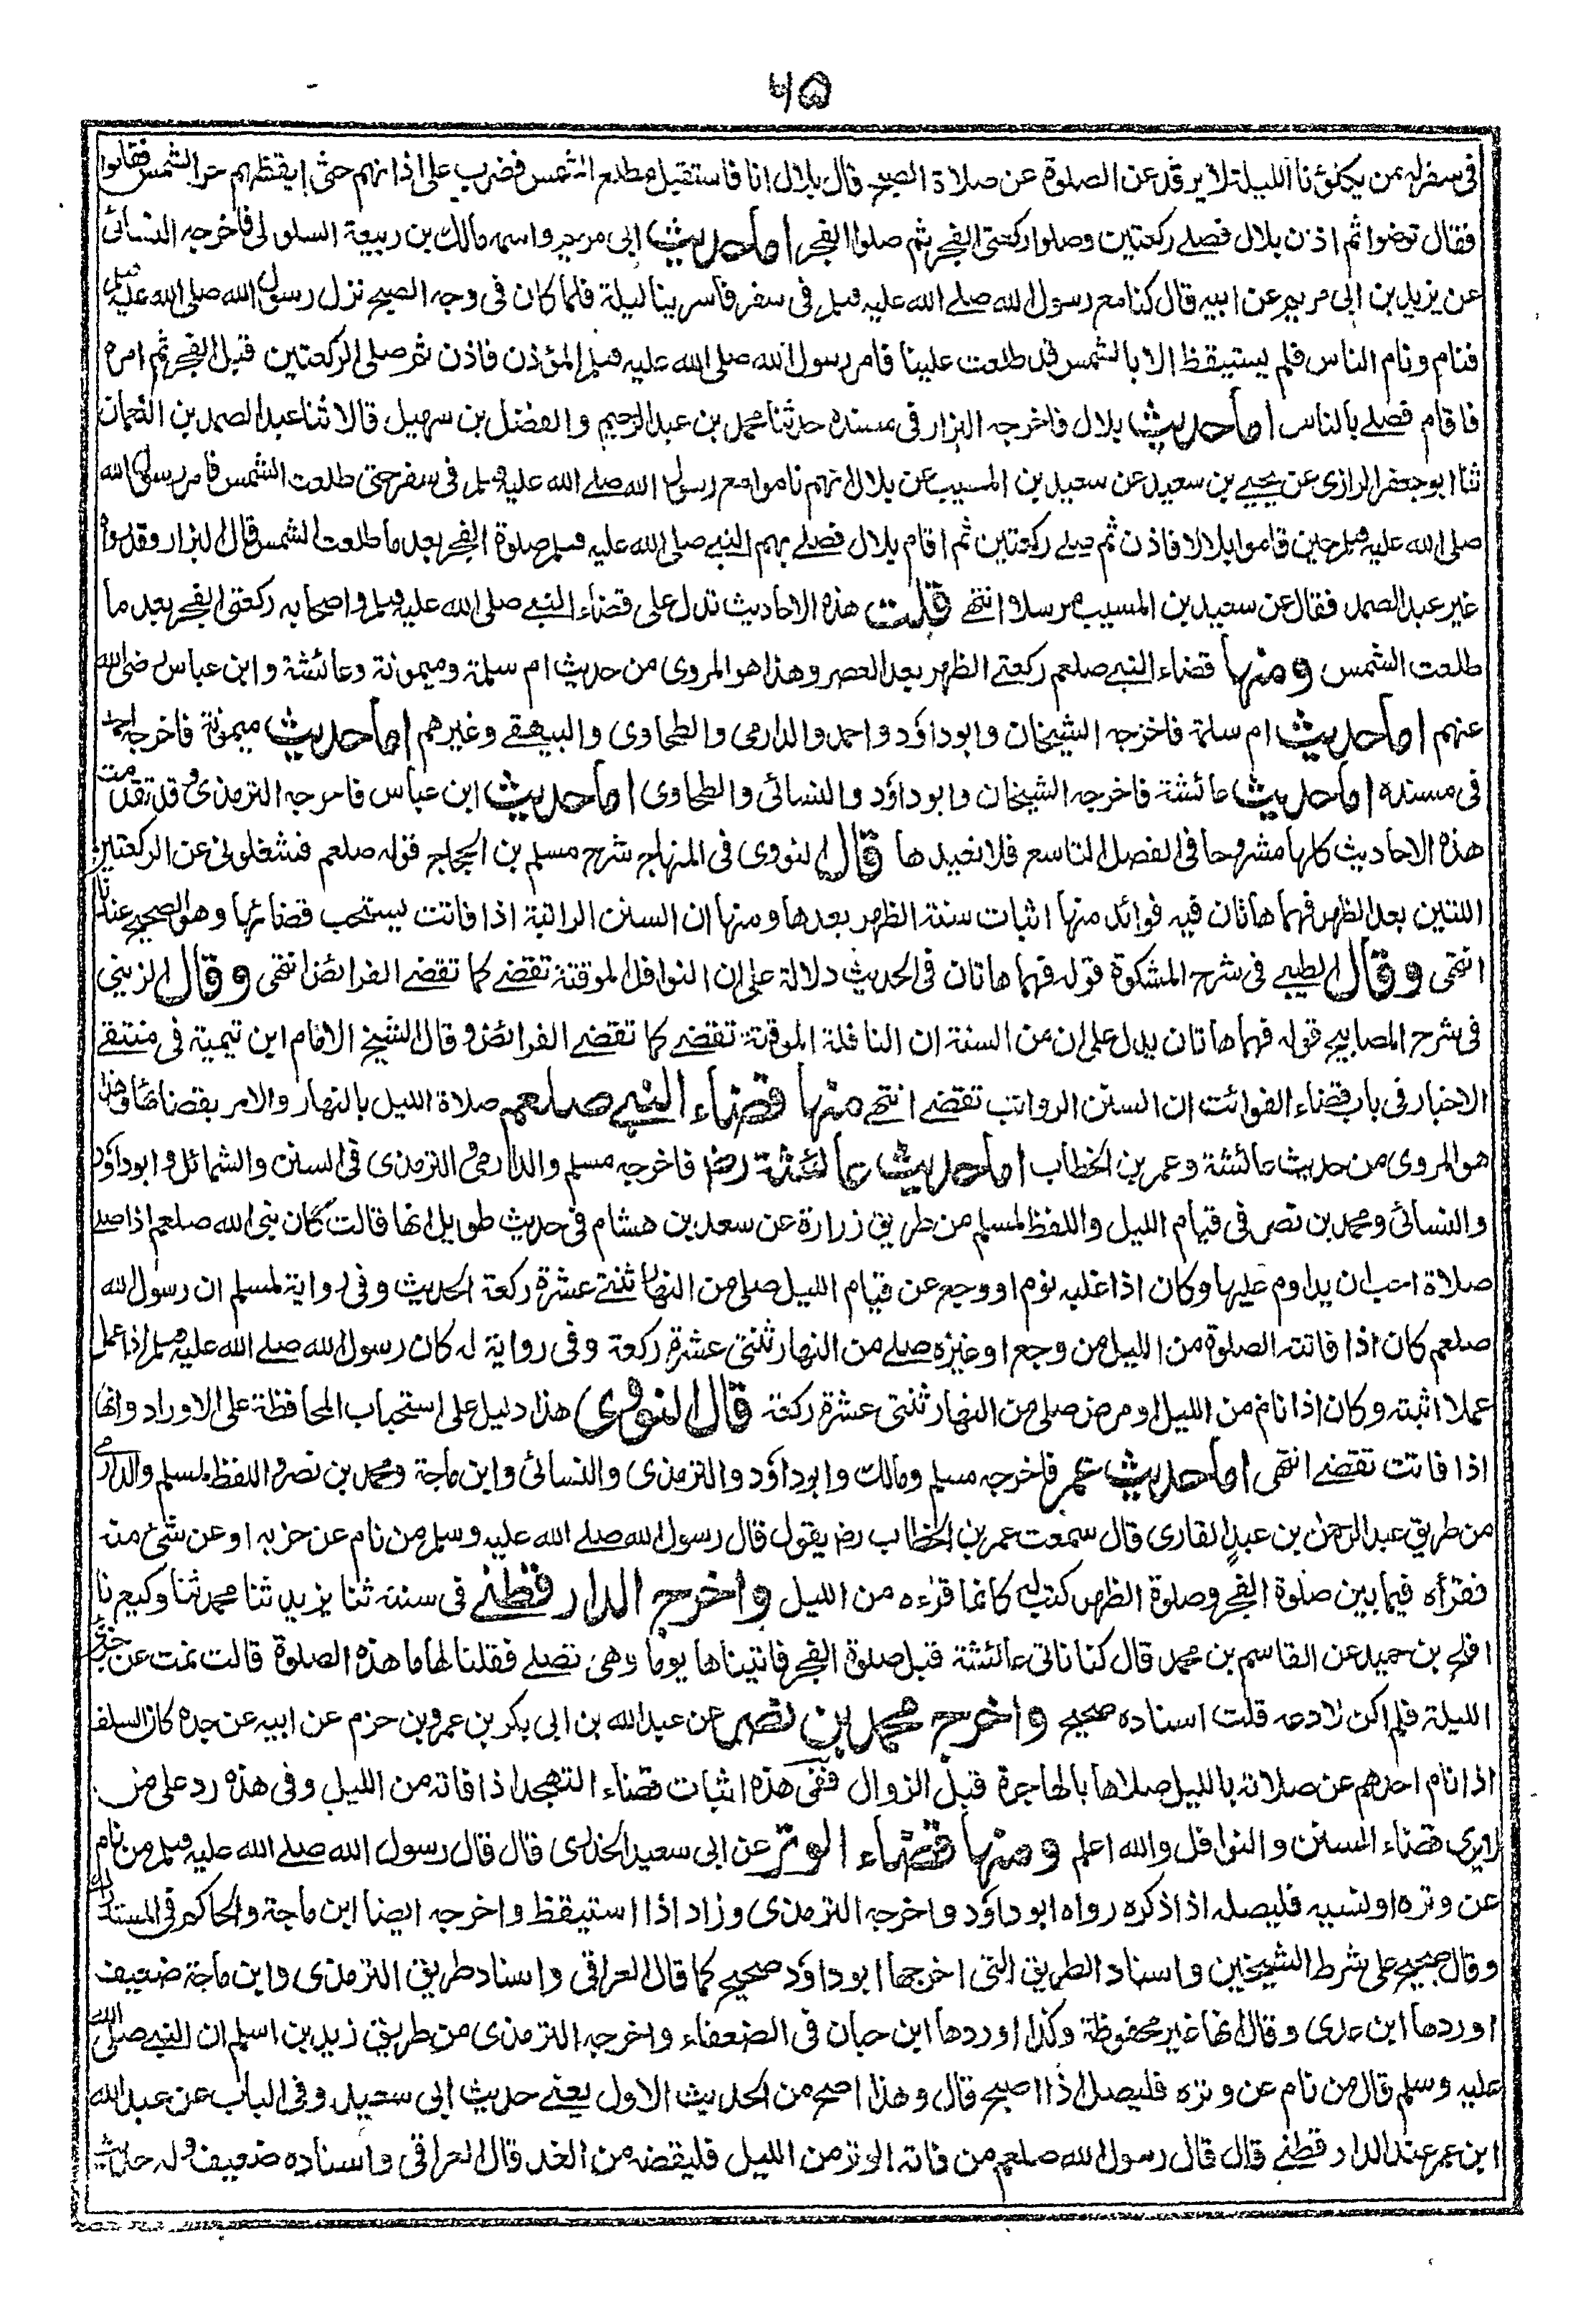 ٦٥
فى سفر له من يكلؤنا الليلة لا يرقد عن الصلوة عن صلاة الصبح قال بلال انا فاستقبل مطلع الشمس فضرب على اذانهم حتى ايقظهم حر الشمس فقاموا
فقال توضوا ثم اذن بلال فصلے ركعتين وصلوا ركعتى الفجر ثم صلوا الفجر اما حديث ابى مريم واسمه مالك بن ربيعة السلولى فاخرجه النسائى
عن يزيد بن ابى مريم عن ابيه قال كنا مع رسول الله صلے الله عليه وسلم فى سفر فاسرينا ليلة فلما كان فى وجه الصبح نزل رسول الله صلى الله عليه وسلم
فنام ونام الناس فلم يستيقظ الا بالشمس قد طلعت علينا فامر رسول الله صلى الله عليه وسلم المؤذن فاذن ثم صلى الركعتين قبل الفجر ثم امره
فاقام فصلے بالناس اما حديث بلال فاخرجه البزار فى مسنده حدثنا محمد بن عبد الرحيم والفضل بن سهيل قالا ثنا عبد الصمد بن النعمان
ثنا ابو جعفر الرازى عن يحيى بن سعيد عن سعيد بن المسيب عن بلال انهم ناموا مع رسول الله صلے الله عليه وسلم فى سفر حتى طلعت الشمس فامر رسول الله
صلى الله عليه وسلم حين قاموا بلالا فاذن ثم صلے ركعتين ثم اقام بلال فصلے بهم النبے صلى الله عليه وسلم صلوة الفجر بعد ما طلعت الشمس قال البزار وقد رواه
غير عبد الصمد فقال عن سعيد بن المسيب مرسلا انتهے قلت هذه الاحاديث تدل على قضاء النبے صلى الله عليه وسلم واصحابه ركعتى الفجر بعد ما
طلعت الشمس ومنها قضاء النبے صلعم ركعتے الظهر بعد العصر وهذا هو المروى من حديث ام سلمة وميمونة وعائشة وابن عباس رضى الله
عنهم اما حديث ام سلمة فاخرجه الشيخان وابو داؤد واحمد والدارمى والطحاوى والبيهقے وغيرهم اما حديث ميمونة فاخرجه احمد
فى مسنده اما حديث عائشة فاخرجه الشيخان وابو داؤد والنسائى والطحاوى اما حديث ابن عباس فاخرجه الترمذى وقد تقدمت
هذه الاحاديث كلها مشروحا فى الفصل التاسع فلا نعيدها قال النووى فى المنهاج شرح مسلم بن الحجاج قوله صلعم فشغلونى عن الركعتين
اللتين بعد الظهر فهما هاتان فيه فوائد منها اثبات سنة الظهر بعدها ومنها ان السنن الراتبة اذا فاتت يستحب قضائها وهو الصحيح عندنا
انتهى وقال الطيبے فى شرح المشكوة قوله فهما هاتان فى الحديث دلالة على ان النوافل الموقتة تقضے كما تقضے الفرائض انتهى وقال الزينى
فى شرح المصابيح قوله فهما هاتان يدل على ان من السنة ان النافلة الموقتة تقضے كما تقضے الفرائض وقال الشيخ الامام ابن تيمية فى منتقے
الاخبار فى باب قضاء الفوائت ان السنن الرواتب تقضے انتهے منها قضاء النبے صلعم صلاة الليل بالنهار والامر بقضائها وهذا
هو المروى من حديث عائشة وعمر بن الخطاب اما حديث عائشة رض فاخرجه مسلم والدارمى والترمذى فى السنن والشمائل وابو داؤد
والنسائى ومحمد بن نصر فى قيام الليل واللفظ لمسلم من طريق زرارة عن سعد بن هشام فى حديث طويل انها قالت كان نبى الله صلعم اذا صلے
صلاة احب ان يداوم عليها وكان اذا غلبه نوم او وجع عن قيام الليل صلى من النهار ثنتے عشرة ركعة الحديث وفى رواية لمسلم ان رسول الله
صلعم كان اذا فاتته الصلوة من الليل من وجع او غيره صلے من النهار ثنتى عشرة ركعة وفى رواية له كان رسول الله صلے الله عليه وسلم اذا عمل
عملا اثبته وكان اذا نام من الليل او مرض صلى من النهار ثنتى عشرة ركعة قال النووى هذا دليل على استحباب المحافظة على الاوراد وانها
اذا فاتت تقضے انتهى اما حديث عمر فاخرجه مسلم ومالك وابو داؤد والترمذى والنسائى وابن ماجة ومحمد بن نصر واللفظ لمسلم والدارمى
من طريق عبد الرحمن بن عبد القارى قال سمعت عمر بن الخطاب رض يقول قال رسول الله صلے الله عليه وسلم من نام عن حزبه او عن شئ منه
فقرأه فيما بين صلوة الفجر وصلوة الظهر كتب له كانما قرءه من الليل واخرج الدارقطنے فى سننه ثنا يزيد ثنا محمد ثنا وكيع نا
افلح بن حميد عن القاسم بن محمد قال كنا ناتى عائشة قبل صلوة الفجر فاتيناها يوما وهى تصلے فقلنا لها ما هذه الصلوة قالت نمت عن حزبى
الليلة فلم اكن لادعه قلت اسناده صحيح واخرج محمد بن نصر عن عبد الله بن ابى بكر بن عمرو بن حزم عن ابيه عن جده كان السلف
اذا نام احدهم عن صلاته بالليل صلاها بالهاجرة قبل الزوال ففى هذه اثبات قضاء التهجد اذا فاته من الليل وفى هذه رد على من
لا يرى قضاء السنن والنوافل والله اعلم ومنها قضاء الوتر عن ابى سعيد الخدرى قال قال رسول الله صلے الله عليه وسلم من نام
عن وتره او نسيه فليصله اذا ذكره رواه ابو داؤد واخرجه الترمذى وزاد اذا استيقظ واخرجه ايضا ابن ماجة والحاكم فى المستدرك
وقال صحيح على شرط الشيخين واسناد الطريق التى اخرجها ابو داؤد صحيح كما قال العراقى واسناد طريق الترمذى وابن ماجة ضعيف
اوردها ابن عدى وقال انها غير محفوظة وكذا اوردها ابن حبان فى الضعفاء واخرجه الترمذى من طريق زيد بن اسلم ان النبے صلى الله
عليه وسلم قال من نام عن وتره فليصل اذا اصبح قال وهذا اصح من الحديث الاول يعنے حديث ابى سعيد وفى الباب عن عبد الله
ابن عمر عند الدارقطنے قال قال رسول الله صلعم من فاته الوتر من الليل فليقضه من الغد قال العراقى واسناده ضعيف وله حديث